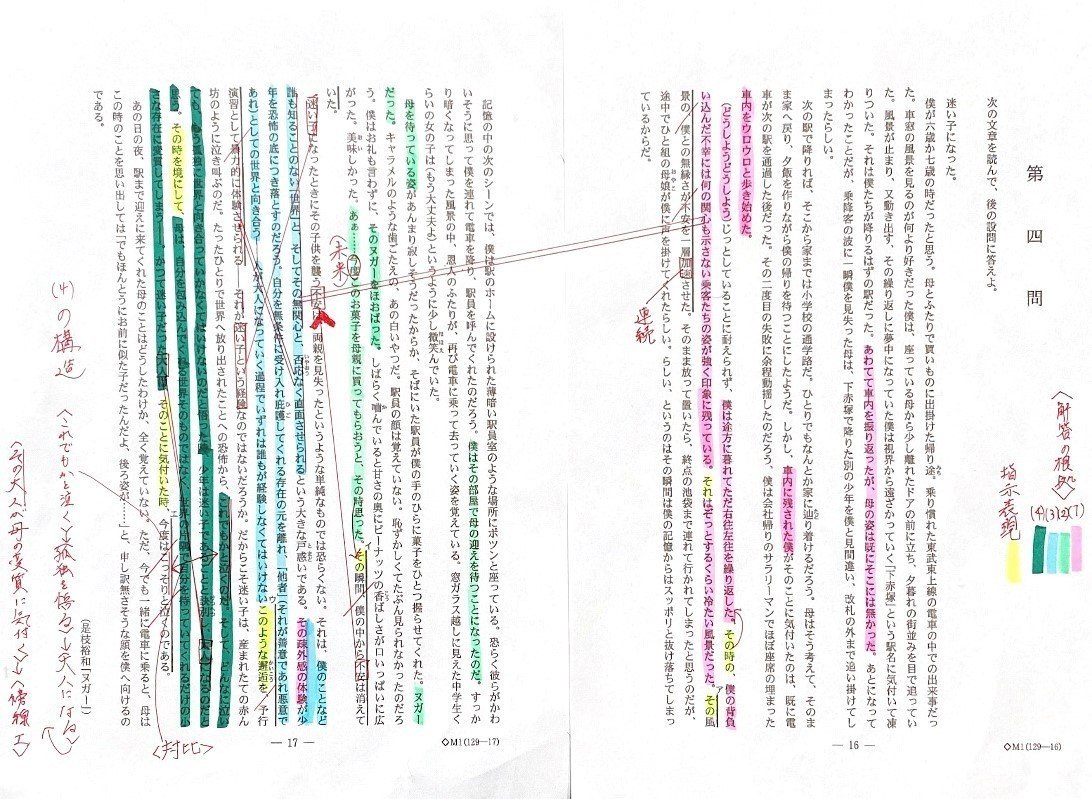 第四問
次の文章を読んで、後の設問に答えよ。
迷い子になった。
僕が六歳か七歳の時だったと思う。母とふたりで買いものに出掛けた帰り途。乗り慣れた東武東上線の電車の中での出来事だっ
た。車窓の風景を見るのが何より好きだった僕は、座っている母から少し離れたドアの前に立ち、夕暮れの街並みを目で追ってい
た。風景が止まり、又動き出す、その繰り返しに夢中になっていた僕は視界から遠ざかっていく「下赤塚」という駅名に気付いて凍
りついた。それは僕たちが降りるはずの駅だった。あわてて車内を振り返ったが、母の姿は既にそこには無かった。あとになって
わかったことだが、乗降客の波に一瞬僕を見失った母は、下赤塚で降りた別の少年を僕と見間違い、改札の外まで追い掛けてし
まったらしい。
次の駅で降りれば、そこから家までは小学校の通学路だ。ひとりでもなんとか家に辿り着けるだろう。母はそう考えて、そのま
ま家へ戻り、夕飯を作りながら僕の帰りを待つことにしたようだ。しかし、車内に残された僕がそのことに気付いたのは、既に電
車が次の駅を通過した後だった。その二度目の失敗に余程動揺したのだろう、僕は会社帰りのサラリーマンでほぼ座席の埋まった
車内をウロウロと歩き始めた。
(どうしようどうしよう)じっとしていることに耐えられず、僕は途方に暮れてただ右往左往を繰り返した。その時の、僕の背負
い込んだ不幸には何の関心も示さない乗客たちの姿が強く印象に残っている。それはぞっとするくらい冷たい風景だった。その風
景の、僕との無縁さが不安を一層加速させた。そのまま放って置いたら、終点の池袋まで連れて行かれてしまったと思うのだが、
途中でひと組の母娘が僕に声を掛けてくれたらしい。らしい、というのはその瞬間は僕の記憶からはスッポリと抜け落ちてしまっ
ているからだ。
連続
<解答の根拠>
(4)(3)(2)(1)
指示表現
— 16 —
◇M1(129—16)
記憶の中の次のシーンでは、僕は駅のホームに設けられた薄暗い駅員室のような場所にポツンと座っている。恐らく彼らがかわ
いそうに思って僕を連れて電車を降り、駅員を呼んでくれたのだろう。僕はその部屋で母の迎えを待つことになったのだ。すっか
り暗くなってしまった風景の中、恩人のふたりが、再び電車に乗って去っていく姿を覚えている。窓ガラス越しに見えた中学生く
らいの女の子は(もう大丈夫よ)というように少し微笑んでいた。
母を待っている姿があんまり寂しそうだったからか、そばにいた駅員が僕の手のひらに菓子をひとつ握らせてくれた。ヌガー
だった。キャラメルのような歯ごたえの、あの白いやつだ。駅員の顔は覚えていない。恥ずかしくてたぶん見られなかったのだろ
う。僕はお礼も言わずに、そのヌガーをほおばった。しばらく嚙んでいると甘さの奥にピーナッツの香ばしさが口いっぱいに広
がった。美味しかった。あぁ……今度このお菓子を母親に買ってもらおうと、その時思った。その瞬間、僕の中から不安は消えて
いた。
迷い子になったときにその子供を襲う不安は、両親を見失ったというような単純なものでは恐らくない。それは、僕のことなど
誰も知ることのない「世界」と、そしてその無関心と、否応なく直面させられるという大きな戸惑いである。その疎外感の体験が少
年を恐怖の底につき落とすのだろう。自分を無条件に受け入れ庇護してくれる存在の元を離れ、「他者」(それが善意であれ悪意で
あれ)としての世界と向き合う。人が大人になっていく過程でいずれは誰もが経験しなくてはいけないこのような邂逅を、予行
演習として暴力的に体験させられる――それが迷い子という経験なのではないだろうか。だからこそ迷い子は、産まれたての赤ん
坊のように泣き叫ぶのだ。たったひとりで世界へ放り出されたことへの恐怖から、これでもかと泣くのだ。そして、どんなに泣い
ても、もう孤独に世界と向き合っていかなくてはいけないのだと悟った時、少年は迷い子であることと訣別し、大人になるのだと
思う。その時を境にして、母は、自分を包み込んでくれる世界そのものではなく、世界の片隅で自分を待っていてくれるだけの小
さな存在に変質してしまう――。かつて迷い子だった大人は、そのことに気付いた時、今度はこっそりと泣くのである。
あの日の夜、駅まで迎えに来てくれた母のことはどうしたわけか、全く覚えていない。ただ、今でも一緒に電車に乗ると、母は
この時のことを思い出しては「でもほんとうにお前に似た子だったんだよ、後ろ姿が……」と、申し訳無さそうな顔を僕へ向けるの
である。
(是枝裕和「ヌガー」)
(未来)
イ
ウ
エ
<対比>
(4)の構造
<これでもかと泣く→孤独を悟る→大人になる>
<その大人へ母の変質に気付く→傍線エ>
— 17 —
◇M1(129—17)